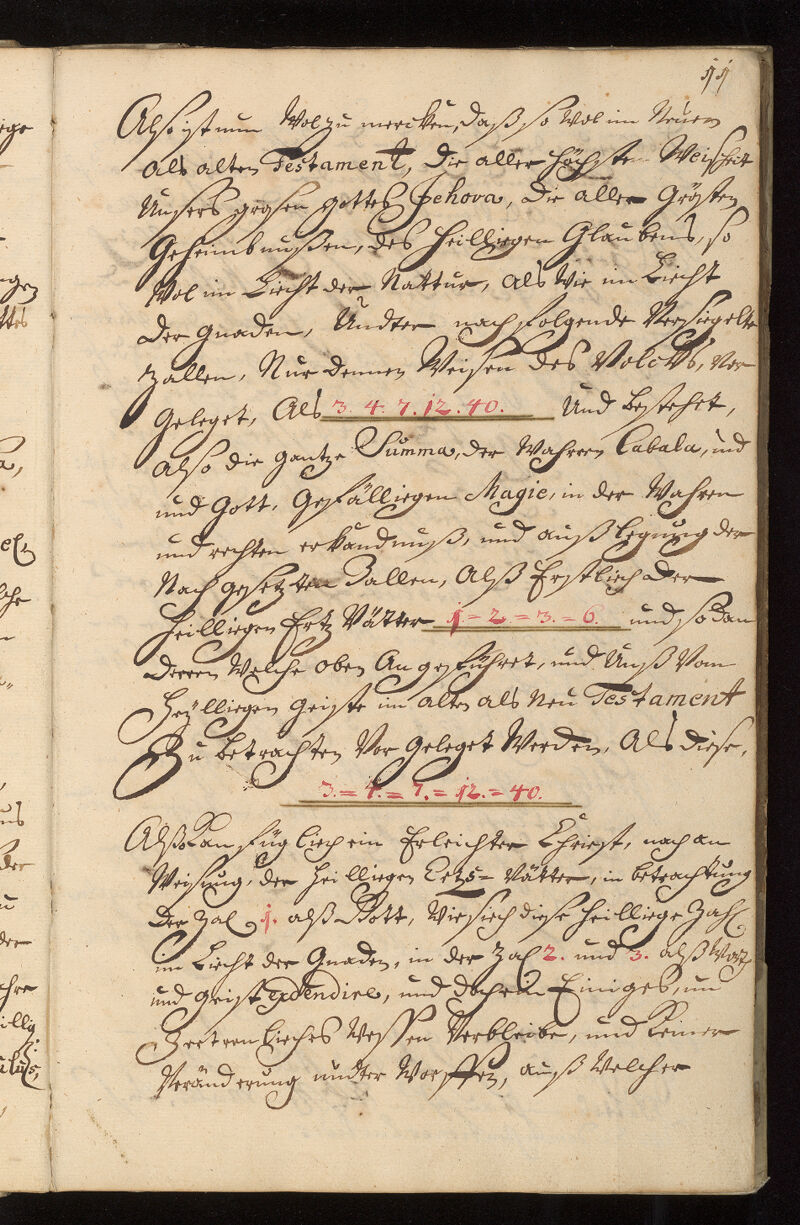 11
Also ist nun Wol zu mercken, daß so Wol im Neuen
als alten Testament, die aller höchste Weisheit
Unsers grosen gottes Jehova, die aller Grösten
Geheimbnußen, des heilliegen Glaubens, so
Wol im Liecht der Nattur, als Wie im Liecht
der gnaden, Undter nachfolgende Versiegelte
Zallen, Nur dennen Weisen des Volcks, Vor
geleget, Als 3. 4. 7. 12. 40. Und bestehet,
also die gantze Summa, der Wahren Cabala, und
und Gott, Gefälliegen Magie, in der Wahren
und rechten erkandnuß, und außlegung der
Nach gesetzten Zallen, Alß Erstlich der
heilliegen Ertz Vätter 1.=2.=3.=6. und so dan
deren Welche oben Angeführet, und Unß Vom
Heylliegen geiste im alten als Neu Testament
Zu betrachten Vor geleget Werden, Als diese,
3.=4.=7.=12.=40.
Alßo Kan füglich ein Erleichter Christ, nach an
Weisung, der heilliegen Ertz=Vätter, in betrachtung
der Zal 1. alß Gott, Wie sich diese heilliege Zahl
im Liecht der Gnaden, in der Zahl 2. und 3. alß Wort
und geist extendire, und doch ein Einiges, un
Zertrenliches Wessen Verbleibe, und Keiner
Veränderung undter Worffen, auß Welcher